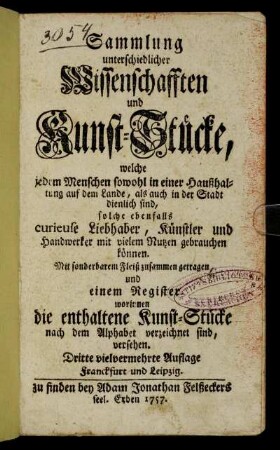 3054
Sammlung
unterschiedlicher
Wissenschafften
und
Kunst-Stücke,
welche
jedem Menschen sowohl in einer Haußhal-
tung auf dem Lande, als auch in der Stadt
dienlich sind,
solche ebenfalls
curieuse Liebhaber, Künstler und
Handwerker mit vielem Nutzen gebrauchen
können.
Mit sonderbarem Fleiß zusammen getragen,
und
einem Register
worinnen
die enthaltene Kunst-Stücke
nach dem Alphabet verzeichnet sind,
versehen.
Dritte vielvermehrte Auflage
Franckfurt und Leipzig.
zu finden bey Adam Jonathan Felßeckers
seel. Erben 1757.